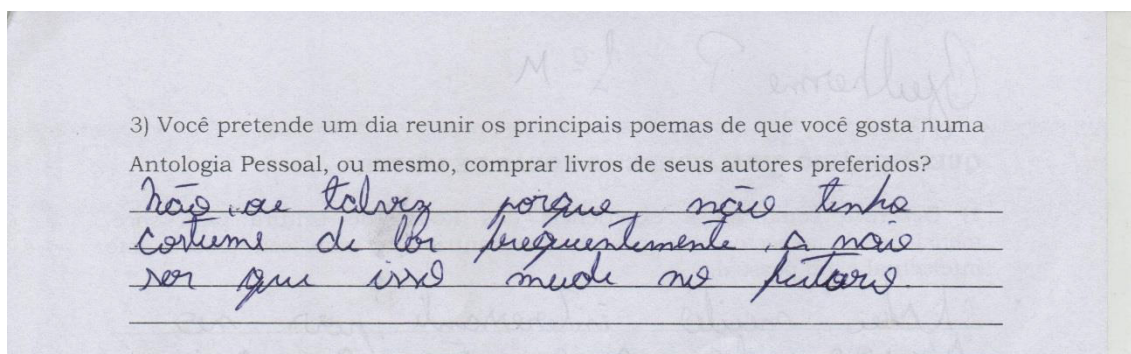 3) Você pretende um dia reunir os principais poemas de que você gosta numa
Antologia Pessoal, ou mesmo, comprar livros de seus autores preferidos?
não, ou talvez porque, não tenho
costume de ler frequentemente, a não
ser que isso mude no futuro.